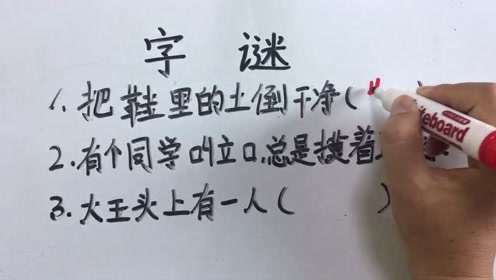 字 谜
1.把鞋里的土倒干净(
2.有个同学叫立口,总是摸着
3.大王头上有一人( )
iteboard